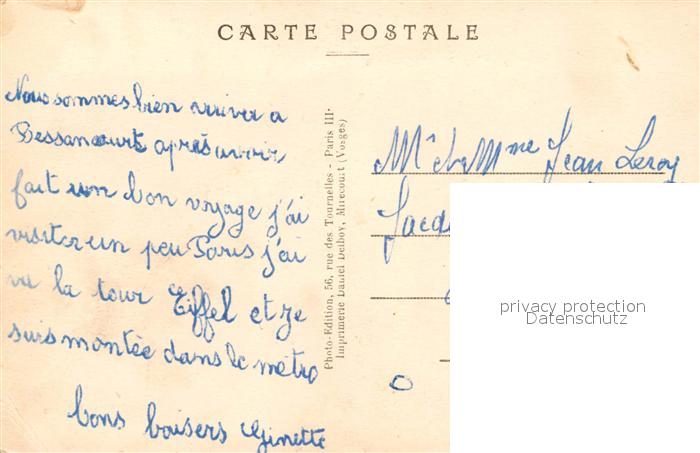 CARTE POSTALE
Nous sommes bien arriver a
Bessancourt après avoir
fait un bon voyage j'ai
visiter un peu Paris j'ai
vu la tour Eiffel et je
suis montée dans le métro
bons baisers Ginette
Photo-Edition, 56, rue des Tournelles - Paris III·
Imprimerie Daniel Delboy, Mirecourt (Vosges)
Mr et Mme Jean Leroy
privacy protection
Datenschutz